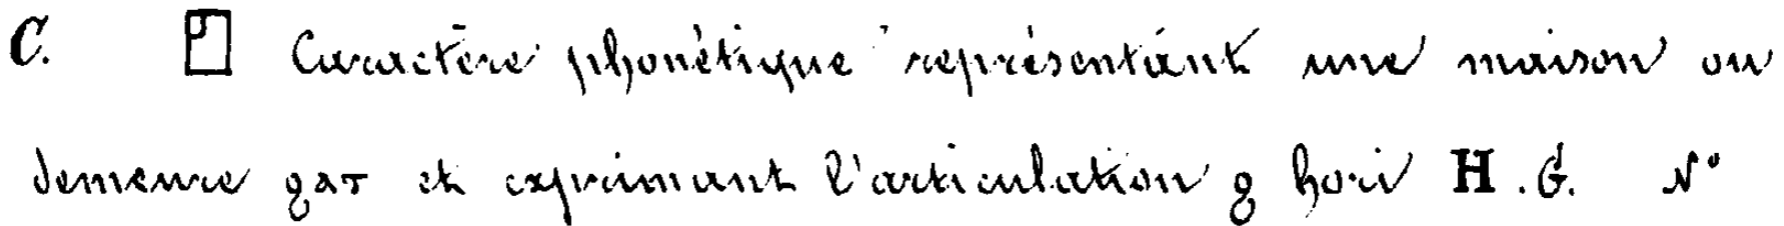 C. 𓉗 Caractère phonétique représentant une maison ou
demeure ϩⲁⲧ et exprimant l'articulation ϩ hori H. G. N°